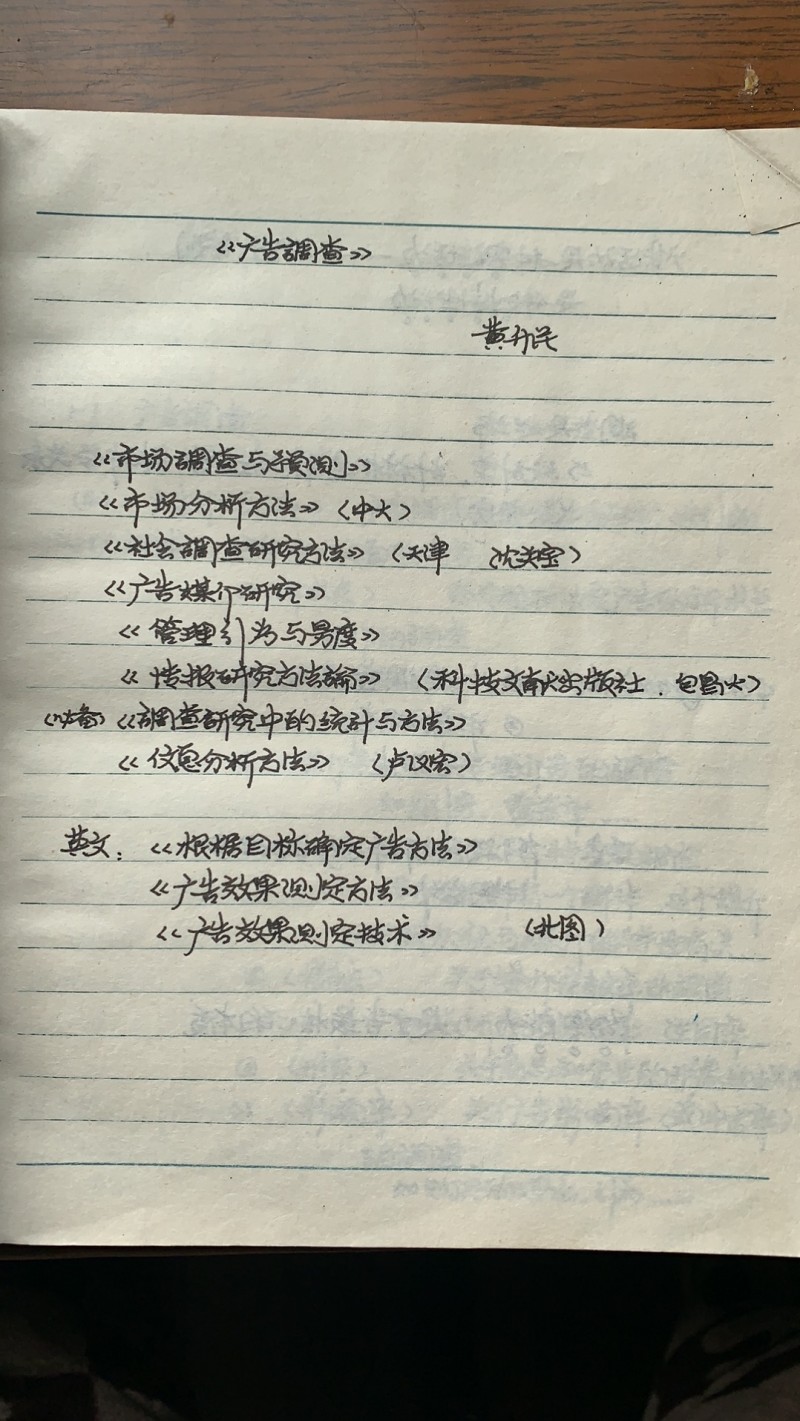 《广告調查》
黄升民
《市场調查与預测》
《市场分析方法》（中大）
《社会調查研究方法》（天津 沈关宝）
《广告媒介研究》
《管理引为与景度》
《情报研究方法論》（科技文献出版社．包昌火）
（必备）《調查研究中的統计与方法》
《信息分析方法》（卢汉宏）
英文：《根据目标确定广告方法》
《广告效果测定方法》
《广告效果测定技术》（北图）